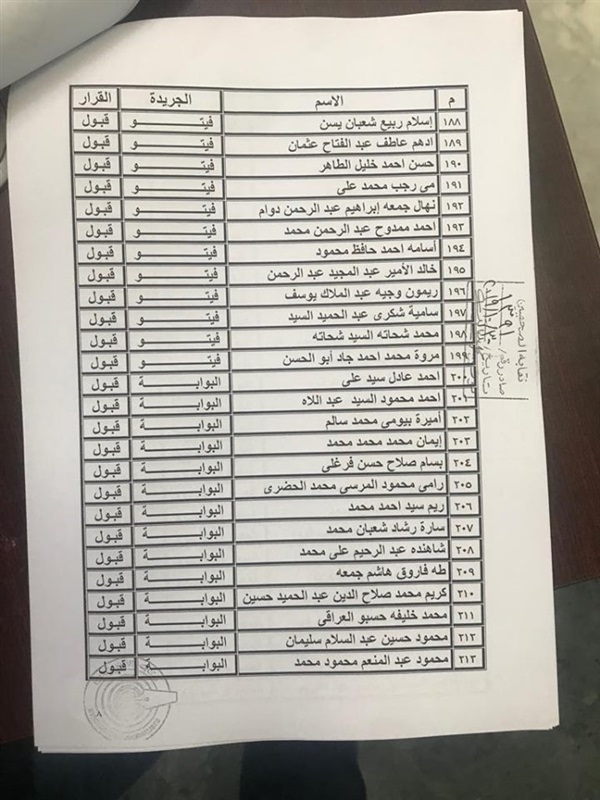 م الاسم الجريدة القرار
١٨٨ إسلام ربيع شعبان يسن فيتـــــو قبول
١٨٩ ادهم عاطف عبد الفتاح عثمان فيتـــــو قبول
١٩٠ حسن احمد خليل الطاهر فيتـــــو قبول
١٩١ مى رجب محمد على فيتـــــو قبول
١٩٢ نهال جمعه إبراهيم عبد الرحمن دوام فيتـــــو قبول
١٩٣ احمد ممدوح عبد الرحمن محمد فيتـــــو قبول
١٩٤ أسامه احمد حافظ محمود فيتـــــو قبول
١٩٥ خالد الأمير عبد المجيد عبد الرحمن فيتـــــو قبول
١٩٦ ريمون وجيه عبد الملاك يوسف فيتـــــو قبول
١٩٧ سامية شكرى عبد الحميد السيد فيتـــــو قبول
١٩٨ محمد شحاته السيد شحاته فيتـــــو قبول
١٩٩ مروة محمد احمد جاد أبو الحسن فيتـــــو قبول
٢٠٠ احمد عادل سيد على البوابـــــة قبول
٢٠١ احمد محمود السيد عبد اللاه البوابـــــة قبول
٢٠٢ أميرة بيومى محمد سالم البوابـــــة قبول
٢٠٣ إيمان محمد محمد محمد البوابـــــة قبول
٢٠٤ بسام صلاح حسن فرغلى البوابـــــة قبول
٢٠٥ رامى محمود المرسى محمد الحضرى البوابـــــة قبول
٢٠٦ ريم سيد احمد محمد البوابـــــة قبول
٢٠٧ سارة رشاد شعبان محمد البوابـــــة قبول
٢٠٨ شاهنده عبد الرحيم على محمد البوابـــــة قبول
٢٠٩ طه فاروق هاشم جمعه البوابـــــة قبول
٢١٠ كريم محمد صلاح الدين عبد الحميد حسين البوابـــــة قبول
٢١١ محمد خليفه حسبو العراقى البوابـــــة قبول
٢١٢ محمود حسين عبد السلام سليمان البوابـــــة قبول
٢١٣ محمود عبد المنعم محمود محمد البوابـــــة قبول
نقابة الصحفيين
صادر رقم/
بتاريخ/